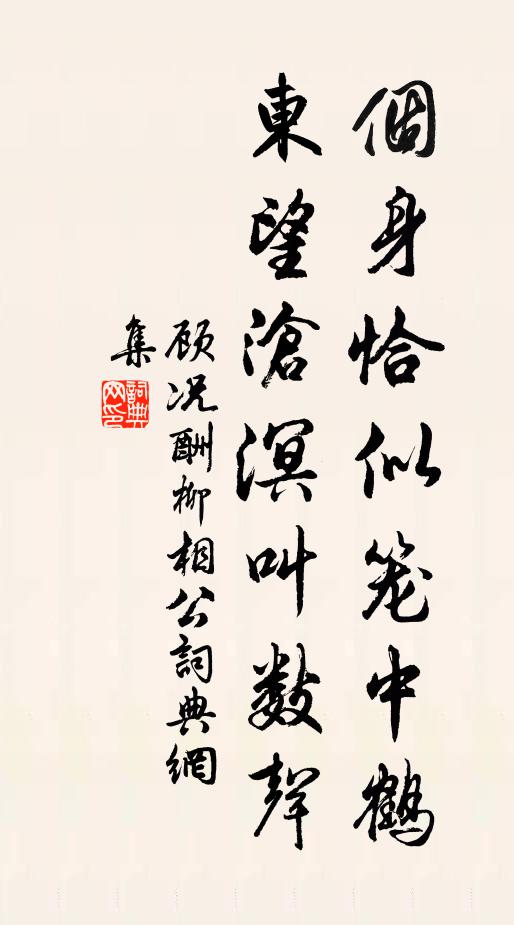 個身恰似笼中鶴
東望滄溟叫数聲
顾况酬柳相公詞典網
集
詞典網印